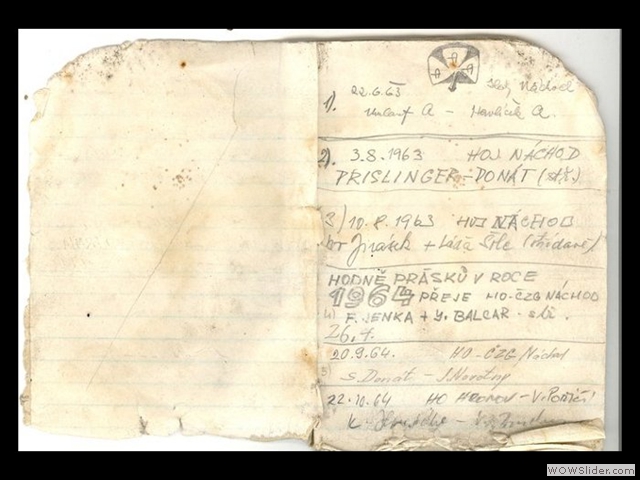 1). 22.6.63 Náchod
A - Havlíček A.
2). 3.8.1963 HOJ NÁCHOD
PRISLINGER - DONÁT (stř.)
3) 10.8.1963 HOJ NÁCHOD
Jirásek + Láďa Šrle (střídavě)
HODNĚ PRÁSKŮ V ROCE
1964 PŘEJE HO-ČZG NÁCHOD
4) F. JENKA + Y. BALCAR - stř.
26.4.
20.9.64. HO-ČZG Náchod
5) S. Donát - J. Novotný
22.10.64 HO HRONOV - V. POŘÍČÍ
K.
WOWSlider.com